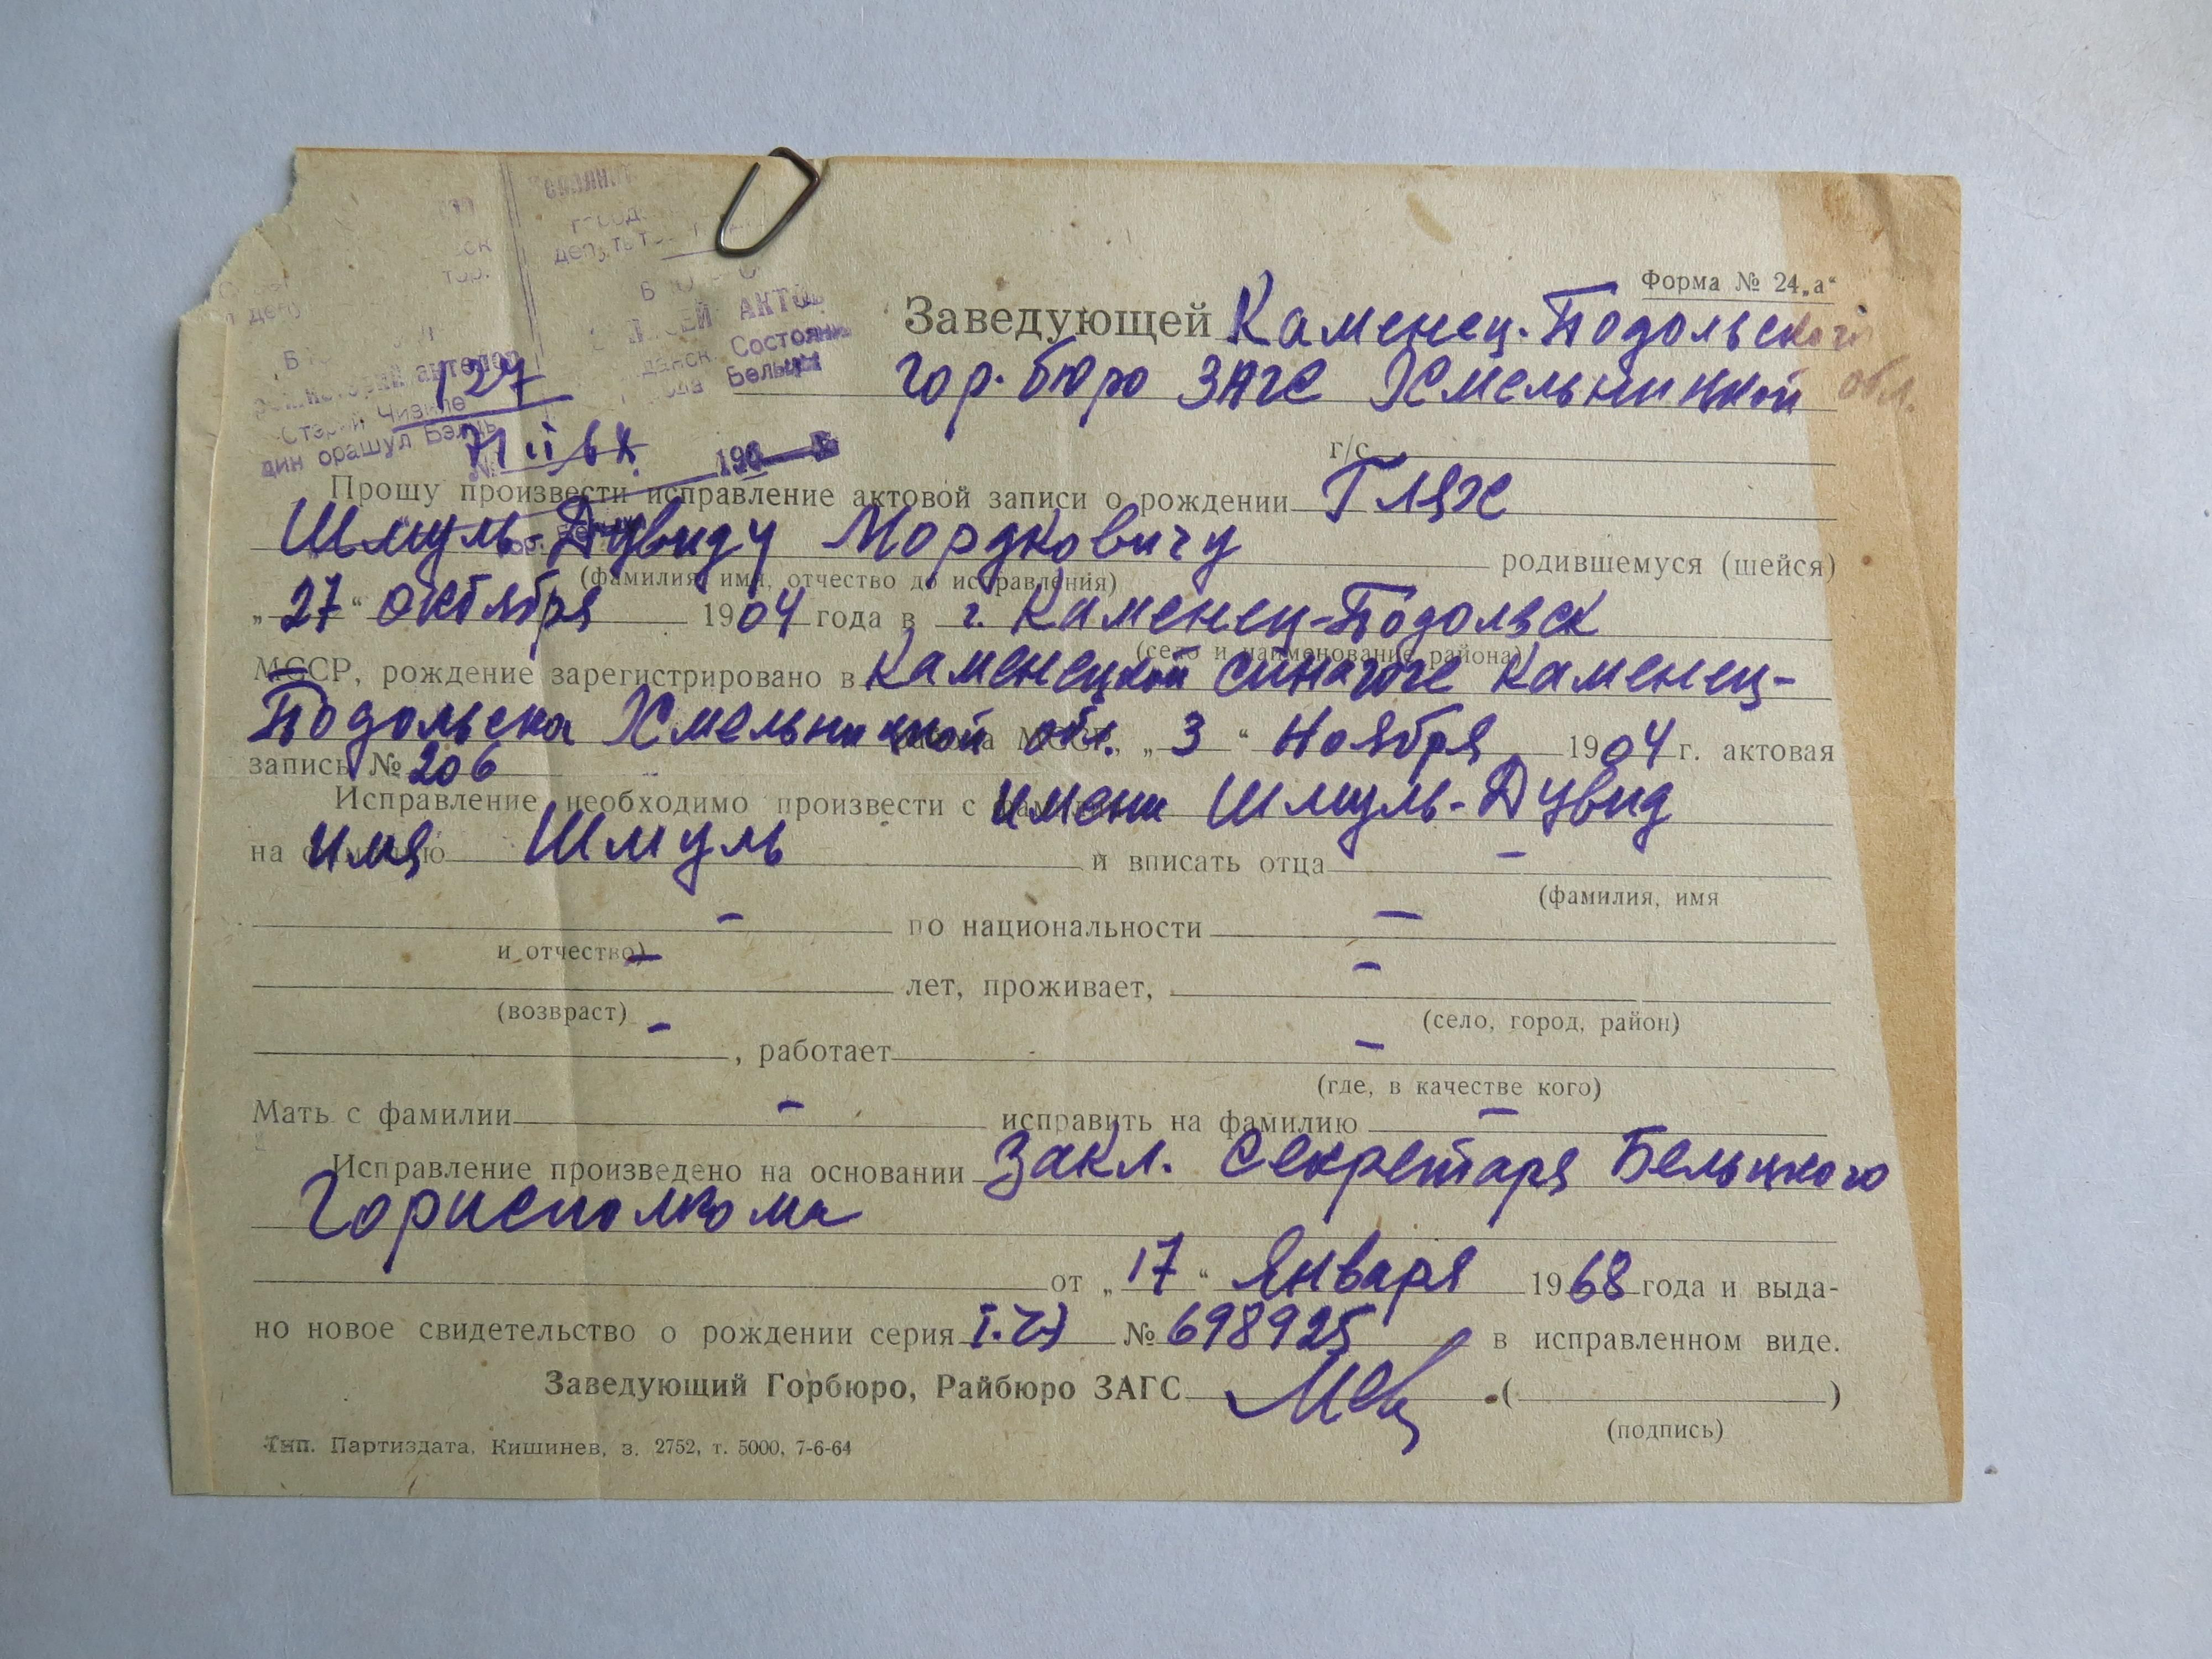 Форма № 24 „а“
Заведующей Каменец-Подольского
гор. бюро ЗАГС Хмельницкой обл.
г/с
АКТОВ
Состояния
Бельцы
актелор
Старий Чивиле
дин орашул Бэлць
127
№
196
Прошу произвести исправление актовой записи о рождении Глях
Шмуль-Дувиду Мордковичу родившемуся (шейся)
(фамилия, имя, отчество до исправления)
„27“ октября 1904 года в г. Каменец-Подольск
(село и наименование района)
МССР, рождение зарегистрировано в Каменецкой синагоге Каменец-
Подольска Хмельницкой обл. „3“ Ноября 1904 г. актовая
запись № 206
Исправление необходимо произвести с имени Шмуль-Дувид
на имя Шмуль и вписать отца –
(фамилия, имя
– по национальности –
и отчество) –
лет, проживает, –
(возраст) – (село, город, район)
, работает –
(где, в качестве кого)
Мать с фамилии – исправить на фамилию –
Исправление произведено на основании Закл. Секретаря Бельцкого
Горисполкома
от „17“ Января 1968 года и выда-
но новое свидетельство о рождении серия № 698925 в исправленном виде.
Заведующий Горбюро, Райбюро ЗАГС ( )
(подпись)
Тип. Партиздата, Кишинев, з. 2752, т. 5000, 7-6-64